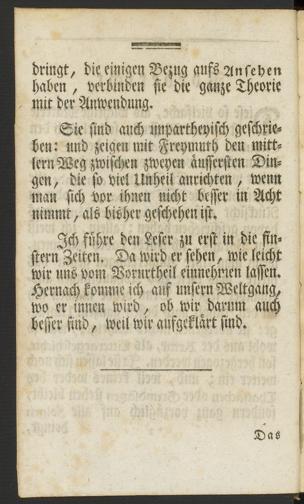 dringt, die einigen Bezug aufs Ansehen
haben, verbinden sie die ganze Theorie
mit der Anwendung.
Sie sind auch unpartheyisch geschrie-
ben: und zeigen mit Freymuth den mitt-
lern Weg zwischen zweyen äussersten Din-
gen, die so viel Unheil anrichten, wenn
man sich vor ihnen nicht besser in Acht
nimmt, als bisher geschehen ist.
Ich führe den Leser zu erst in die fin-
stern Zeiten. Da wird er sehen, wie leicht
wir uns vom Vorurtheil einnehmen lassen.
Hernach komme ich auf unsern Weltgang,
wo er innen wird, ob wir darum auch
besser sind, weil wir aufgeklärt sind.
Das